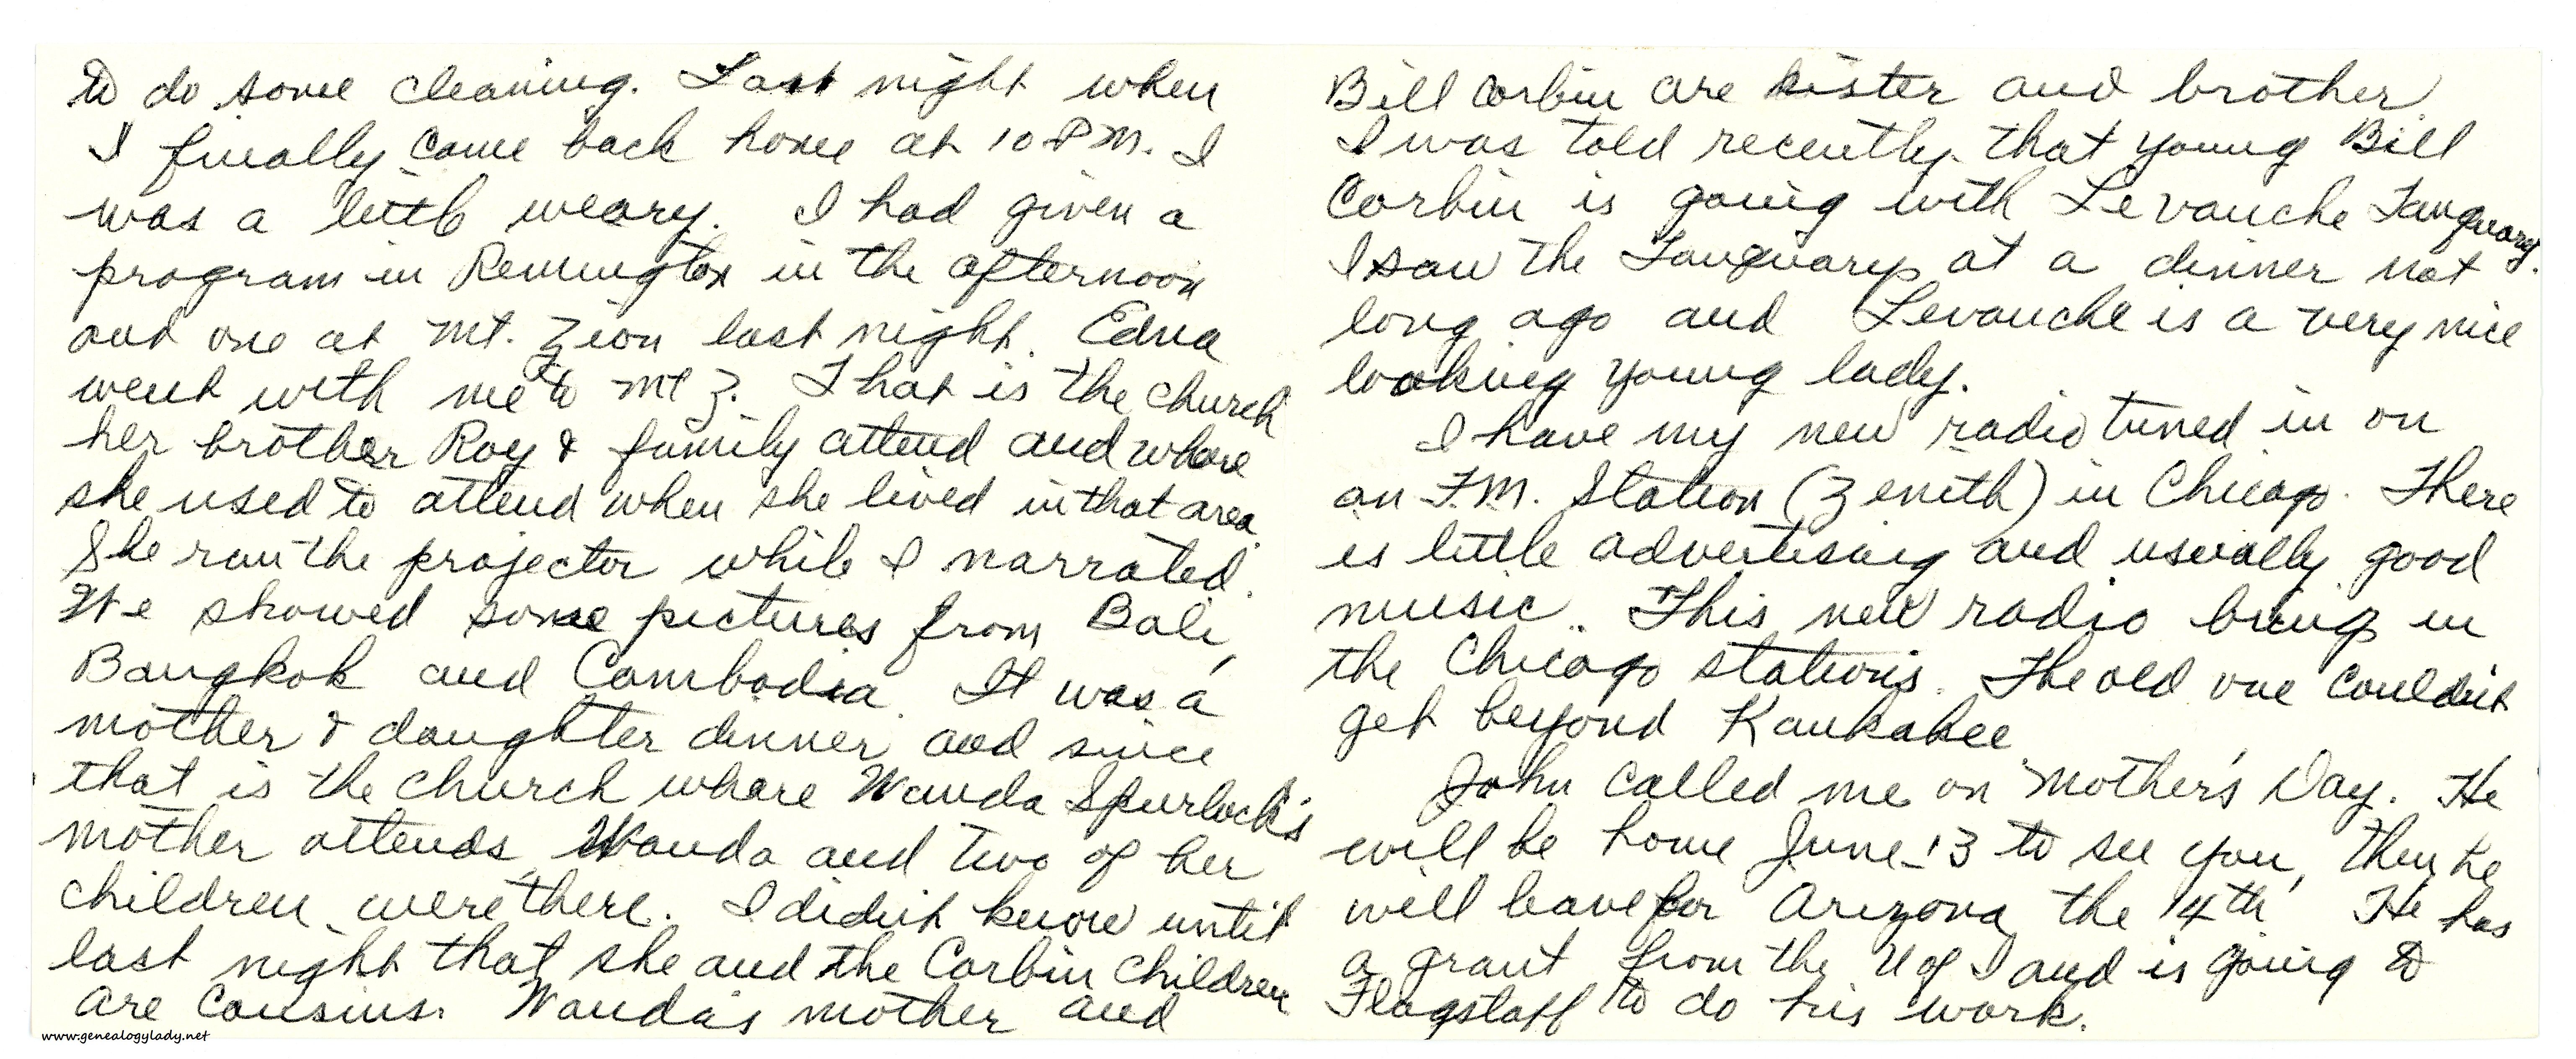 to do some cleaning. Last night when
I finally came back home at 10 P.M. I
was a little weary. I had given a
program in Remington in the afternoon
and one at Mt. Zion last night. Edna
went with me to Mt Z. That is the church
her brother Roy & family attend and where
she used to attend when she lived in that area.
She ran the projector while I narrated.
We showed some pictures from Bali,
Bangkok and Cambodia. It was a
mother & daughter dinner and since
that is the church where Wanda Spurlock's
mother attends, Wanda and two of her
children were there. I didn't know until
last night that she and the Corbin children
are cousins. Wanda's mother and
Bill Corbin are sister and brother
I was told recently that young Bill
Corbin is going with Levanche Tanquary.
I saw the Tanquarys at a dinner not
long ago and Levanche is a very nice
looking young lady.
I have my new radio tuned in on
an F.M. Station (Zenith) in Chicago. There
is little advertising and usually good
music. This new radio brings in
the Chicago stations. The old one couldn't
get beyond Kankakee
John called me on Mother's Day. He
will be home June 13 to see you, then he
will leave for Arizona the 14th He has
a grant from the U of I and is going to
Flagstaff to do his work.
www.genealogylady.net